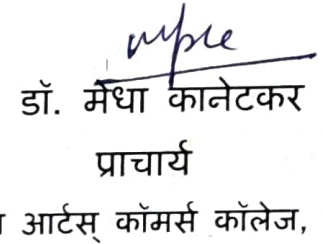 डॉ. मेधा कानेटकर
प्राचार्य
आर्टस् कॉमर्स कॉलेज,